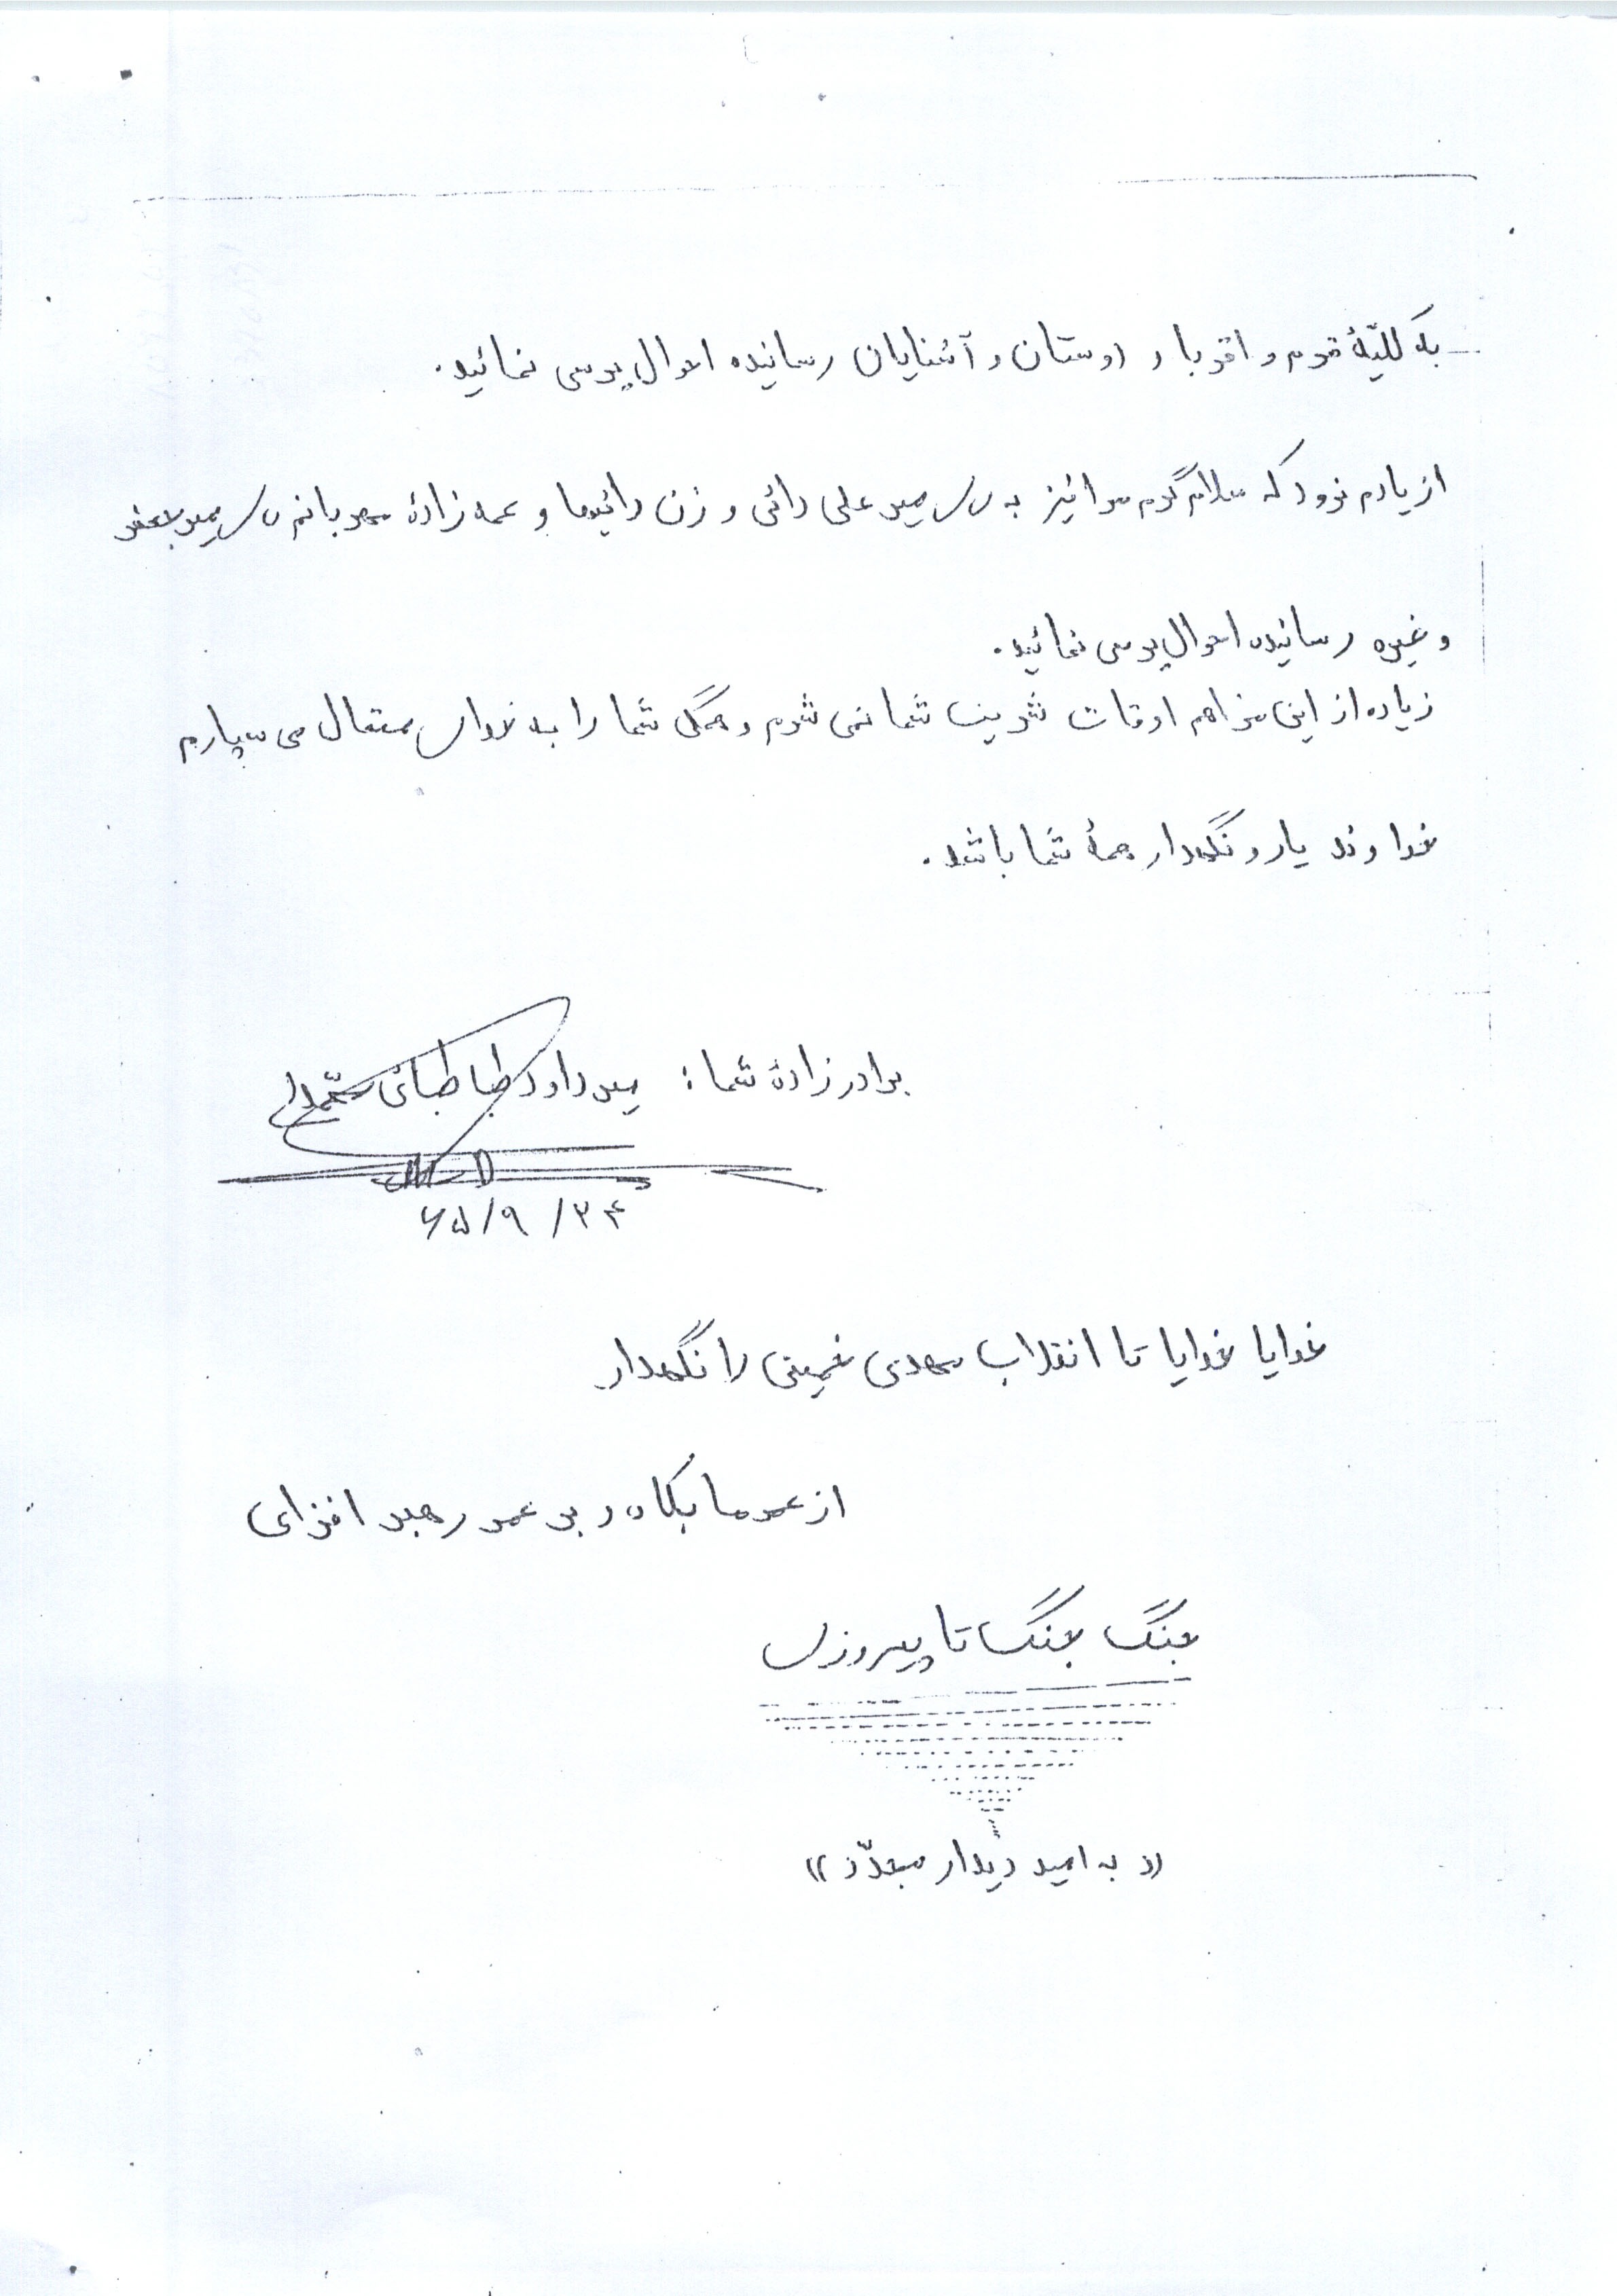 به کلیّهٔ قوم و اقربا و دوستان و آشنایان رسانیده احوال پرسی نمائید.
از یادم نرود که سلام گرم مرا نیز به میر علی دائی و زن دائیها و عمه زادهٔ مهربانم میر جعفر
و غیره رسانیده احوال پرسی نمائید.
زیاده از این مزاحم اوقات شریف شما نمی شوم و همگی شما را به خدای متعال می سپارم
خداوند یار و نگهدار همهٔ شما باشد.
برادرزادهٔ شما: میر داود طباطبائی
۶۵/۹/۲۴
خدایا خدایا تا انقلاب مهدی خمینی را نگهدار
از عمر ما بکاه و بر عمر رهبر افزای
جنگ جنگ تا پیروزی
«به امید دیدار مجدّد»